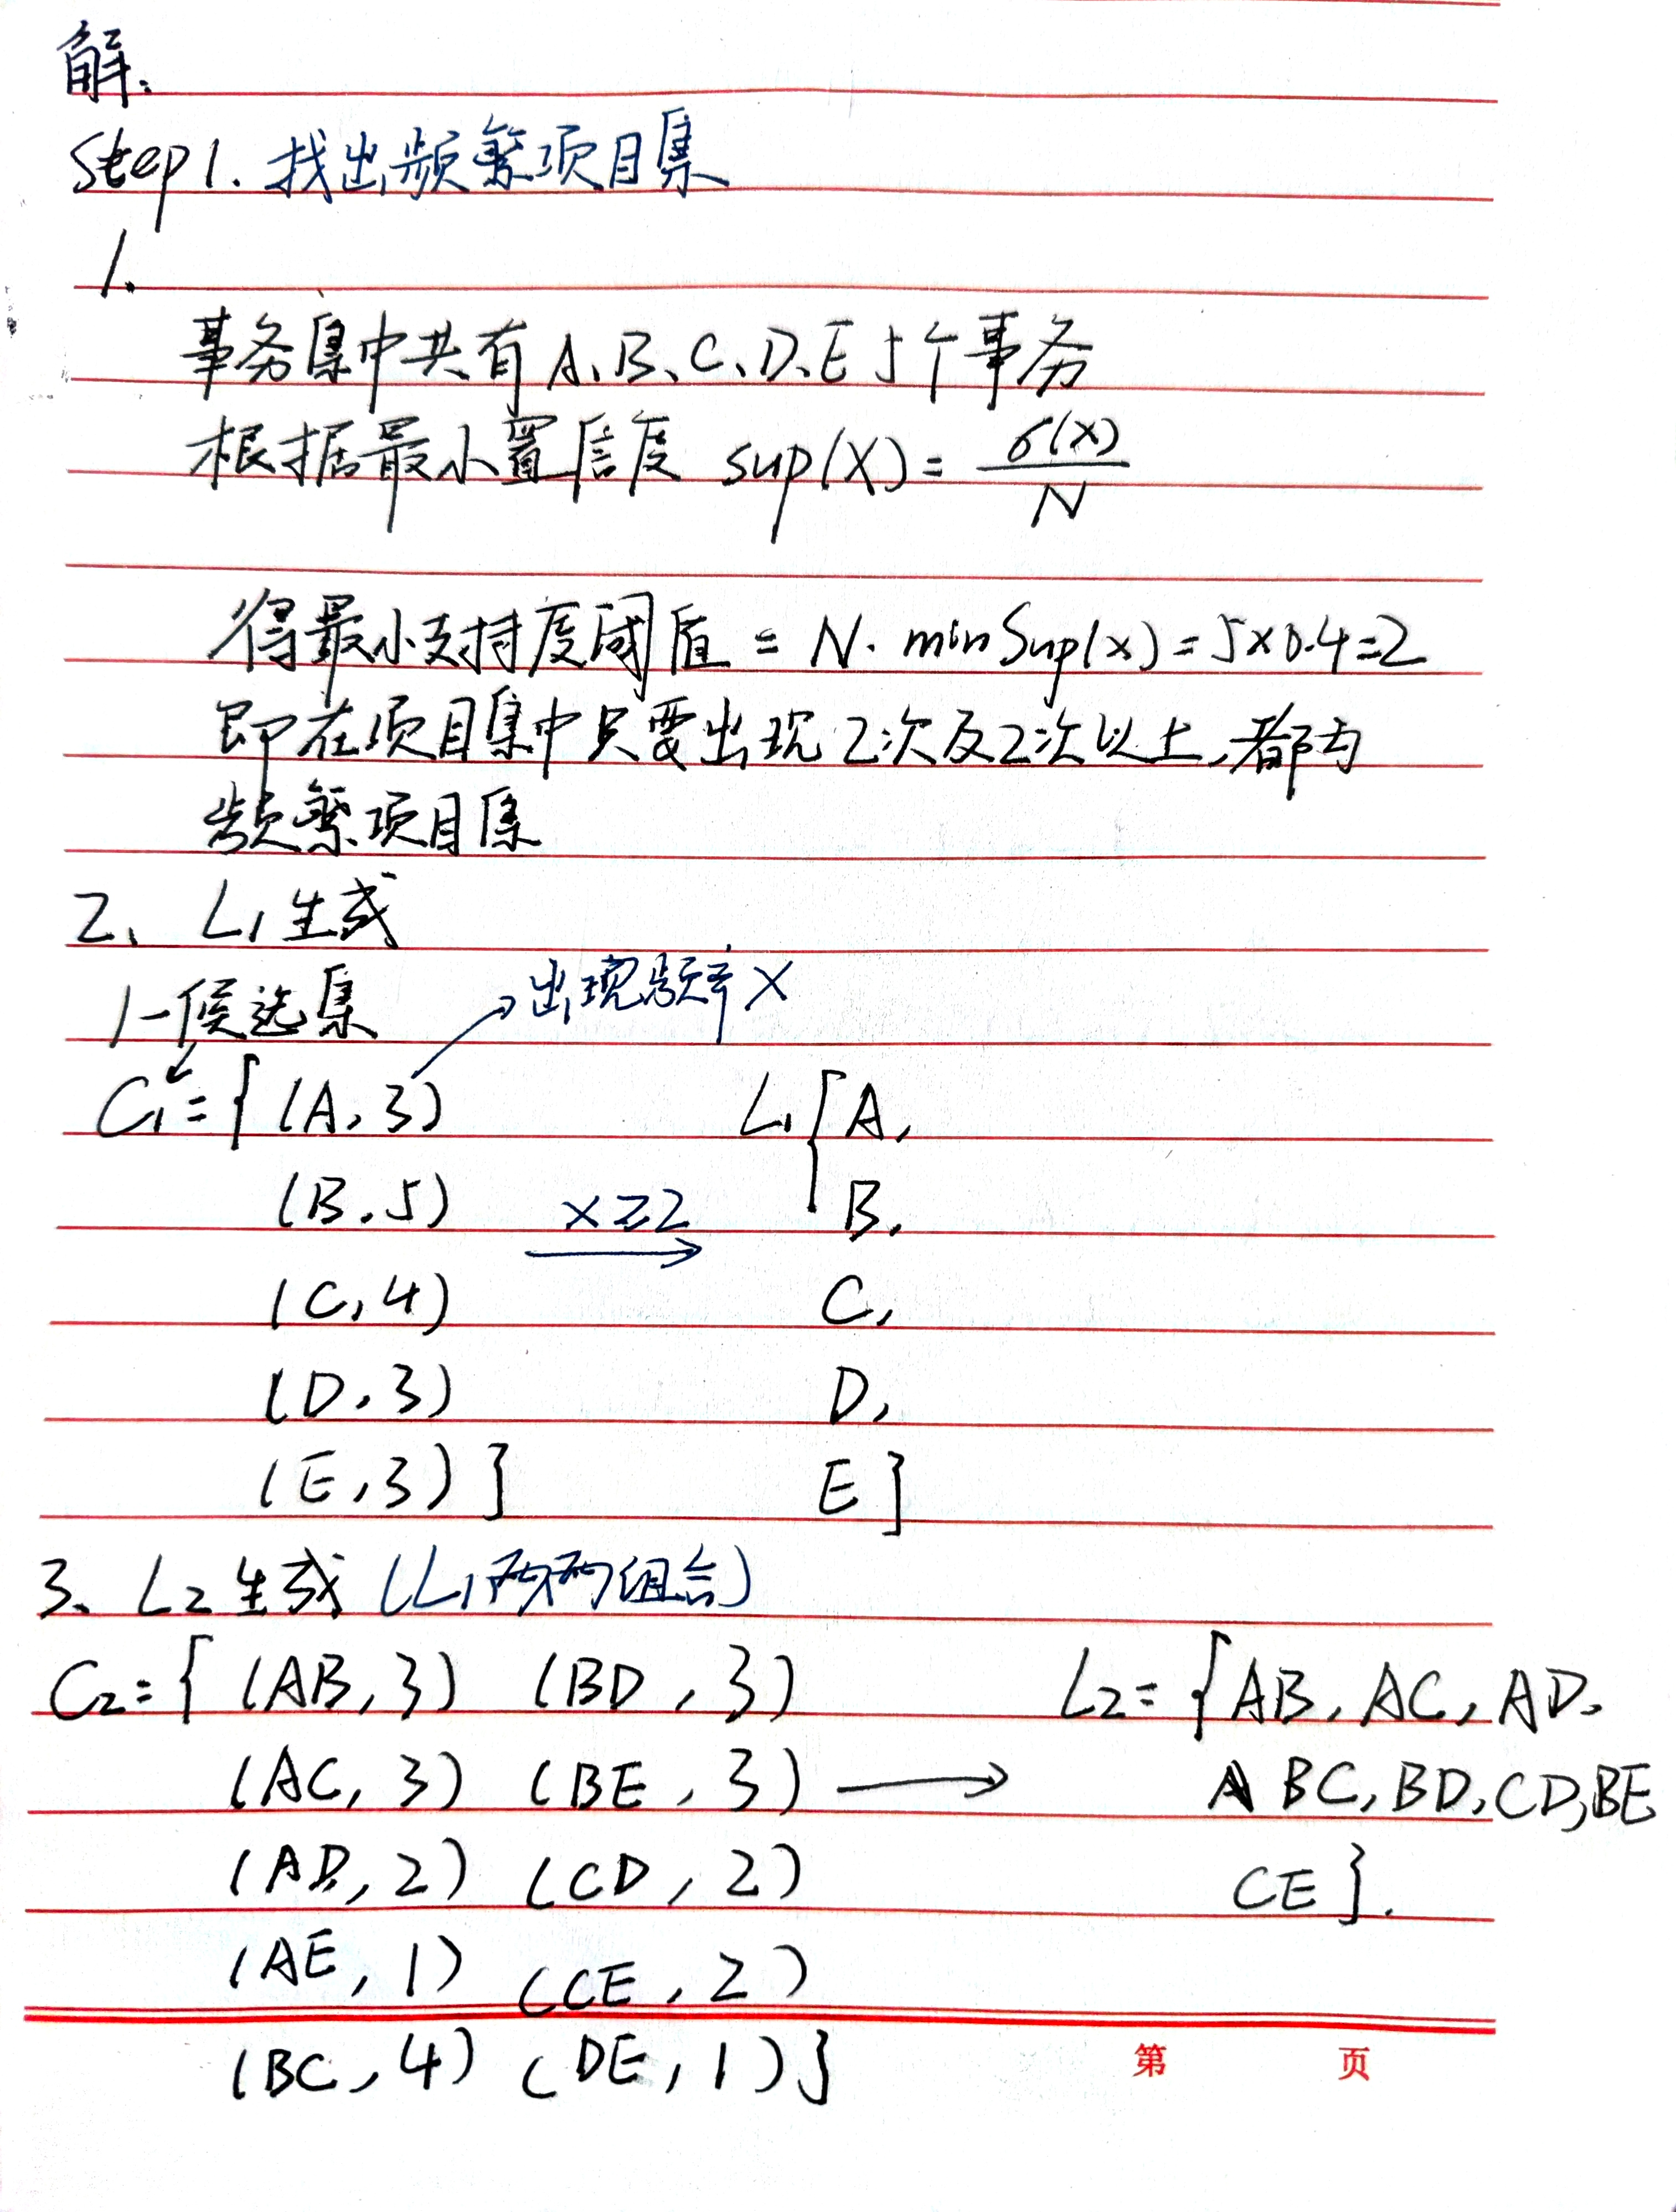 解:
Step1. 找出频繁项目集
1.
事务集中共有 A、B、C、D、E 5个事务
根据最小置信度 sup(X) = σ(X)/N
得最小支持度阈值 = N. minSup(x) = 5×0.4=2
即在项目集中只要出现2次及2次以上,都为
频繁项目集
2、 L₁生成
1-候选集 →出现频率X
C₁={ (A, 3) L₁{ A,
(B, 5) X≥2 B,
(C, 4) C,
(D, 3) D,
(E, 3) } E }
3、L₂生成 (L₁两两组合)
C₂={ (AB, 3) (BD, 3) L₂={ AB, AC, AD,
(AC, 3) (BE, 3) → BC, BD, CD, BE
(AD, 2) (CD, 2) CE }.
(AE, 1) (CE, 2)
(BC, 4) (DE, 1) }
第 页